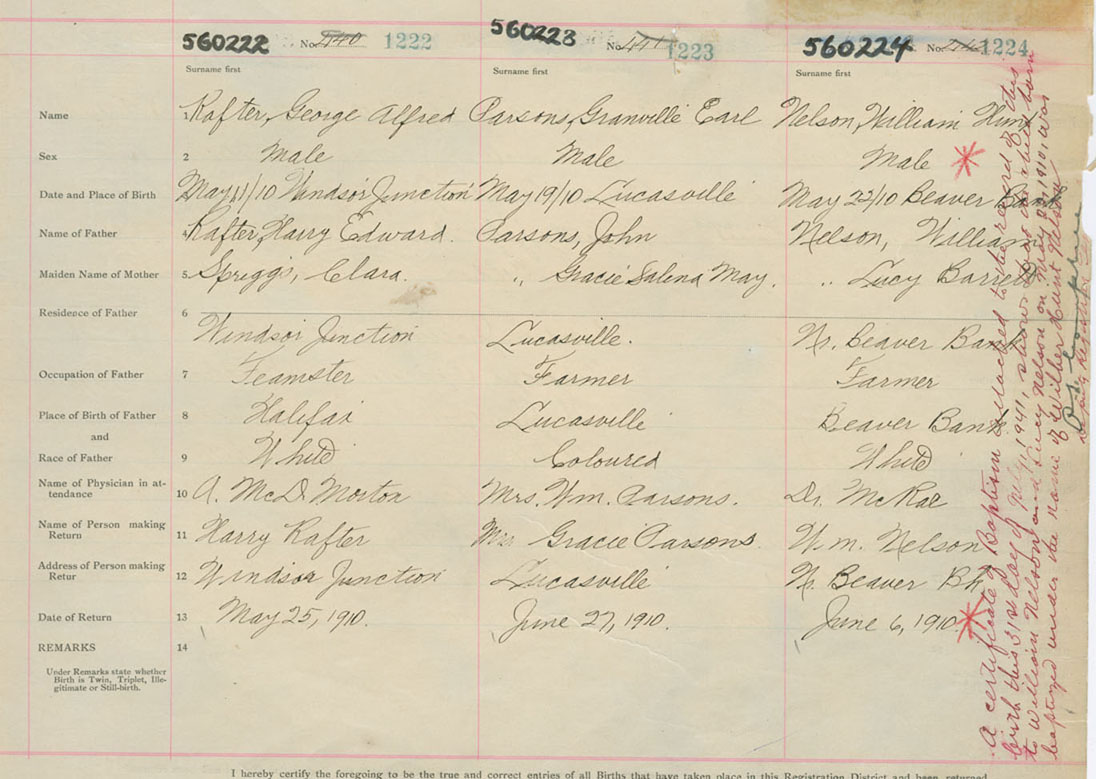 560222 No. 2140 1222 560223 No. 1223 560224 No. 1224
Surname first Surname first Surname first
Name 1 Rafter, George Alfred Parsons, Granville Earl Nelson, William Hunt
Sex 2 Male Male Male
Date and Place of Birth May 11/10 Windsor Junction May 19/10 Lucasville May 22/10 Beaver Bank
Name of Father 4 Rafter, Harry Edward. Parsons, John Nelson, William
Maiden Name of Mother 5 Spriggs, Clara. " Gracie Salena May. " Lucy Barrett
Residence of Father 6
Windsor Junction Lucasville. Nr. Beaver Bank
Occupation of Father 7 Teamster Farmer Farmer
Place of Birth of Father 8 Halifax Lucasville Beaver Bank
and
Race of Father 9 White Coloured White
Name of Physician in at-
tendance 10 A. McD. Morton Mrs. Wm. Parsons. Dr. McRae
Name of Person making
Return 11 Harry Rafter Mrs Gracie Parsons. Wm. Nelson
Address of Person making
Retur 12 Windsor Junction Lucasville N. Beaver Bk
Date of Return 13 May 25, 1910. June 27, 1910. June 6, 1910.
REMARKS 14
Under Remarks state whether
Birth is Twin, Triplet, Ille-
gitimate or Still-birth.
A certificate of Baptism attached to the record of this
birth this 31st day of 1941, shows that a child born
to William Nelson and Lucy Nelson on May 22, 1910, was
baptized under the name of Wilber Hunt Nelson
Deputy Registrar
I hereby certify the foregoing to be the true and correct entries of all Births that have taken place in this Registration District and been returned